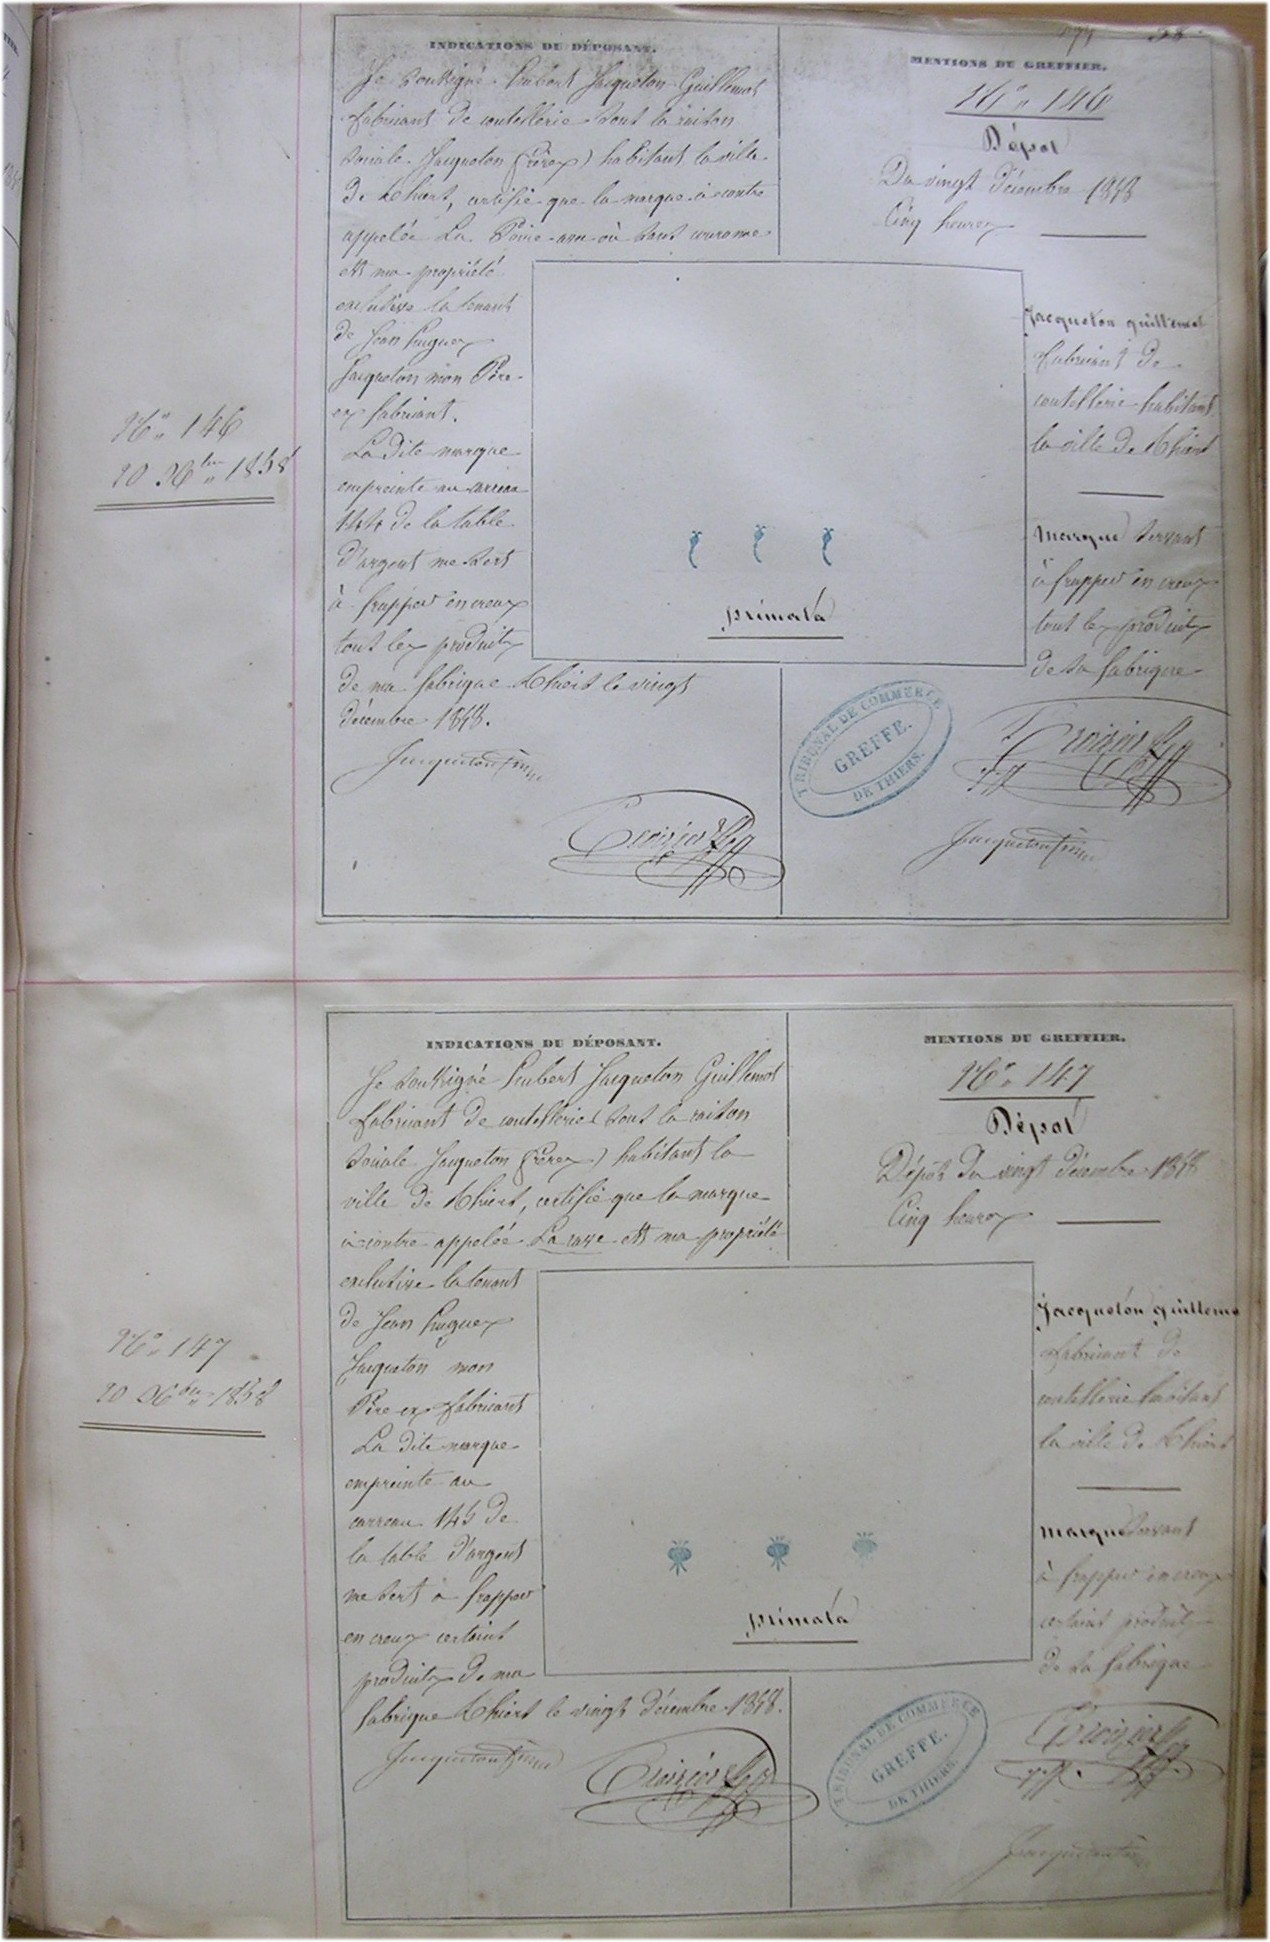 N° 146
20 Xbre 1858
INDICATIONS DU DÉPOSANT.
Je soussigné Hubert Jacqueton Guillemot
fabricant de coutellerie sous la raison
sociale Jacqueton frères) habitant la ville
de Thiers, certifie que la marque ci contre
appelée La Poire sans couronne
est ma propriété
exclusive la tenant
de Jean hugues
Jacqueton mon Père
ex fabricant.
La dite marque
empreinte au carreau
144 de la table
d'argent me sert
à frapper en creux
tout les produits
de ma fabrique Thiers le vingt
décembre 1858.
Jacqueton frères
primata
MENTIONS DU GREFFIER.
N° 146
Dépot
Du vingt décembre 1858
Cinq heures
Jacqueton guillemot
fabricant de
coutellerie habitant
la ville de Thiers
marque servant
à frapper en creux
tout les produits
de sa fabrique
TRIBUNAL DE COMMERCE
GREFFE.
DE THIERS.
Jacqueton frères
N° 147
20 Xbre 1858
INDICATIONS DU DÉPOSANT.
Je soussigné hubert Jacqueton Guillemot
fabricant de coutellerie (sous la raison
sociale Jacqueton frères) habitant la
ville de Thiers, certifie que la marque
ci contre appelée La rave est ma propriété
exclusive la tenant
de Jean hugues
Jacqueton mon
Père ex fabricant
La dite marque
empreinte au
carreau 145 de
la table d'argent
me sert à frapper
en creux certains
produits de ma
fabrique Thiers le vingt décembre 1858.
Jacqueton frères
primata
MENTIONS DU GREFFIER.
N° 147
Dépot
Dépôt du vingt décembre 1858
Cinq heures
Jacqueton guillemo
fabricant de
coutellerie habitant
la ville de Thiers
marque servant
à frapper en creux
certains produits
de sa fabrique
TRIBUNAL DE COMMERCE
GREFFE.
DE THIERS.